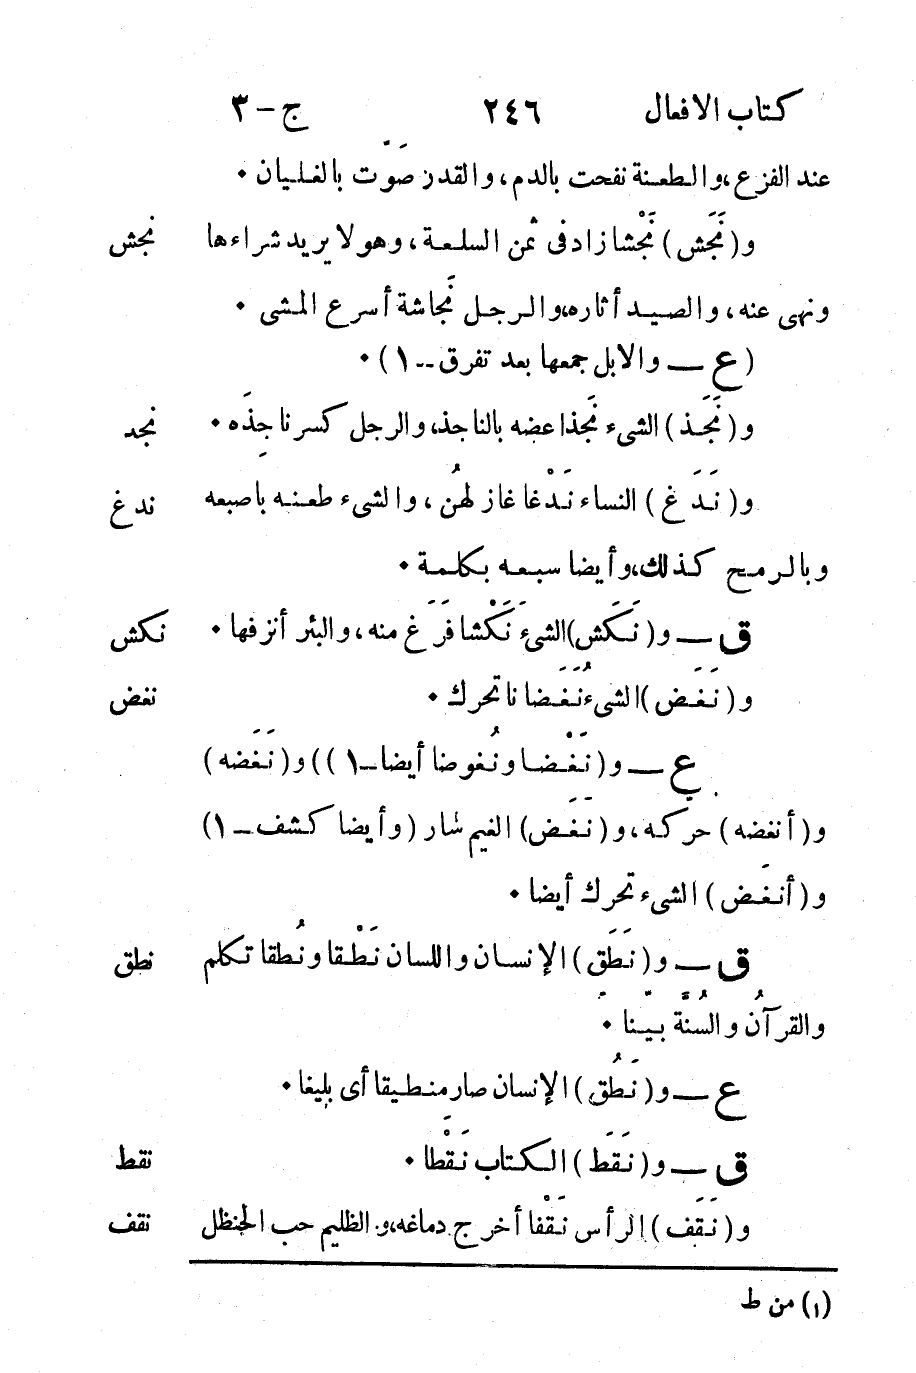 كتاب الافعال ٢٤٦ ج - ٣
عند الفزع ، والطعنة نفحت بالدم ، والقدر صَوَّت بالغليان ٠
و ( نَجَش ) نَجْشا زاد فى ثمن السلعة ، وهو لا يريد شراءها نجش
ونهى عنه ، والصيد أثاره ، والرجل نَجاشة أسرع المشى ٠
( ع ــ والابل جمعها بعد تفرق -- ١ ) ٠
و ( نَجَذ ) الشىء نَجذا عضه بالناجذ ، والرجل كسر ناجِذَه ٠ نجد
و ( نَدَغ ) النساء نَدْغا غازلهُن ، والشىء طعنه باصبعه ندغ
وبالرمح كذلك ، وأيضا سبعه بكلمة ٠
ق ــ و ( نَكَش ) الشىءَ نَكْشا فَرَغ منه ، والبئر أنزفها ٠ نكش
و ( نَغَض ) الشىءُ نَغَضانا تحرك ٠ نغض
ع ــ و ( نَغْضا ونُغوضا أيضا ـ ١ ) ) و ( نَغَضه )
و ( أنغضه ) حركه ، و ( نَغَض ) الغيم سار ( وأيضا كشف ـ ١ )
و ( أنغَض ) الشىء تحرك أيضا ٠
ق ــ و ( نَطَق ) الإنسان واللسان نَطْقا ونُطقا تكلم نطق
والقرآنُ والسُنَّة بيّنا ٠
ع ــ و ( نَطُق ) الإنسان صار منطيقا أى بليغا ٠
ق ــ و ( نَقَط ) الكتاب نَقْطا ٠ نقط
و ( نَقَف ) الرأس نَقْفا أخرج دماغه ، و الظليم حب الحنظل نقف
(١) من ط